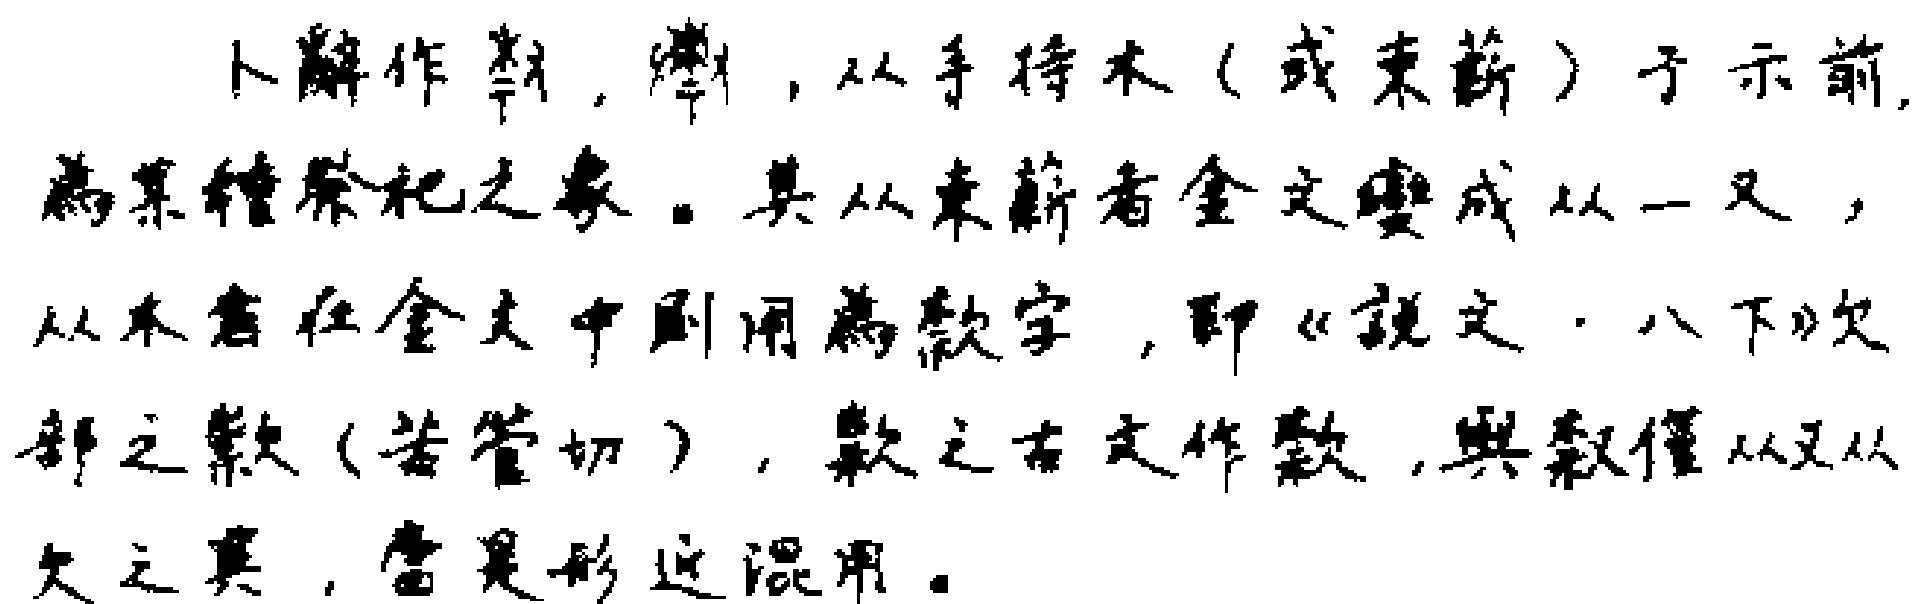 卜辭作，，从手持木（或束薪）于示前，
為某種祭祀之象。其从束薪者金文變成从一又，
从木者在金文中則用為款字，即《說文·八下》欠
部之款（苦管切），款之古文作款，與叙僅从又从
欠之異，當是形近混用。